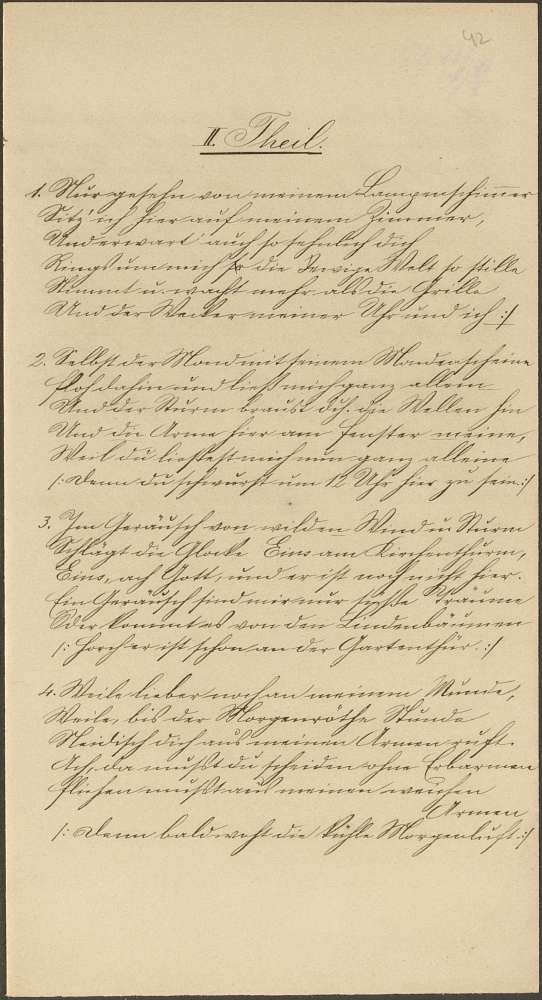 42
II. Theil.
1. Nur gesehn von meinem Lampenschimmer
Sitz' ich hier auf meinem Zimmer,
Und erwart' auch so sehnlich dich
Rings um mich die Welt so stille
Nimmt u. wacht mehr als die Grille
Und der Wecker meiner Uhr und ich :/
2. Selbst der Mond mit seinem Mondenscheine
floh dahin und ließ mich ganz allein
Und der Sturm braust dch. die Wellen hin
Und die Arme hier am Fenster weine,
Weil du ließest mich nun ganz alleine
/: Denn du schwurst um 12 Uhr hier zu sein :/
3. Im Geräusch von wilden Wind u. Sturm
Schlägt die Glocke Eins am Kirchenthurm,
Eins, ach Gott, und er ist noch nicht hier.
Ein Geräusch sind mir nur Träume
Oder kommt es von den Lindenbäumen
/: Horch er ist schon an der Gartenthür. :/
4. Weile lieber noch an meinem Munde,
Weile, bis der Morgenröthe Stunde
Neidisch dich aus meinen Armen ruft.
Ach, da mußst du scheiden ohne Erbarmen
fliehen mußst aus meinen weichen
Armen
/: Denn bald weht die kühle Morgenluft :/